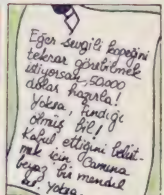 Eğer sevgili köpeğini
tekrar görebilmek
istiyorsan, 50.000
dolar hazırla!
Yoksa, Fındığı
ölmüş bil!
Kabul ettiğini belirt-
mek için, camına
beyaz bir mendil
as. Yoksa..